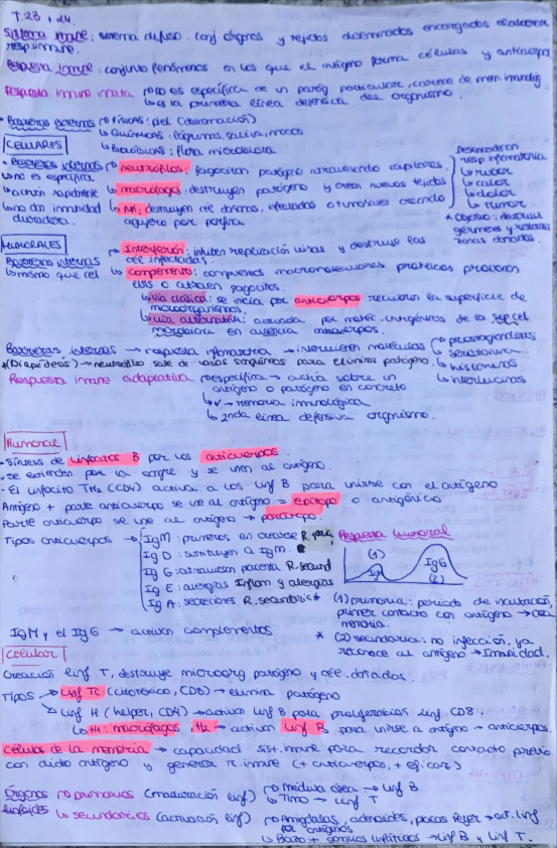 T.23 y 24
Sistema inmune: sistema difuso. conj órganos y tejidos diseminados encargados elaborar
resp inmune.
Respuesta inmune: conjunto fenómenos en los que el antígeno forma células y anticuerpos
Respuesta inmune innata no es específica de un patóg particular, carece de mem inmunológ
↳ es la primera línea defensiva del organismo.
• Barreras externas Físicas: piel (descamación)
↳ Químicas: lágrimas, saliva, mocos
↳ Biológicas: flora microbiota
CELULARES
• Barreras internas neutrófilos: fagocitan patógeno atravesando capilares.
↳ no es específica
↳ acción rápida
↳ no da inmunidad duradera.
↳ macrófagos: destruyen patógeno y crean nuevos tejidos
↳ NK: destruyen cél dañadas, infectadas o tumorales creando
agujero por porfina
Desencadenan
resp inflamatoria
↳ rubor
↳ calor
↳ dolor
↳ tumor
* Objetivo: destruir
gérmenes y restaurar
zonas dañadas.
HUMORALES
Barreras internas
↳ mismo que cel
Interferón: inhiben replicación virus y destruye las
cél infectadas.
↳ complemento: compuestos macromoleculares proteicos provocan
lisis o atraen fagocitos
↳ vía clásica: se inicia por anticuerpos recubren la superficie de
microorganismos.
↳ vía alternativa: activada por molec. antigénicas de la sup cel
microbiana en ausencia anticuerpos.
Barreras internas → respuesta inflamatoria → intervienen moléculas prostaglandinas
↳ serotonina
↳ histaminas
↳ interleucinas
*(Diapédesis) → neutrófilo sale de vasos sanguíneos para eliminar patógeno.
Respuesta inmune adaptativa específica → actúa sobre un
antígeno o patógeno en concreto
↳ ✓ → memoria inmunológica
↳ 2nda línea defensiva organismo.
Humoral
• Síntesis de linfocitos B por los anticuerpos.
• Se extienden por la sangre y se unen al antígeno.
• El linfocito TH2 (CD4) activa a los linf B para unirse con el antígeno
Antígeno + parte anticuerpo se une al antígeno = epítopo o antigénico
Parte anticuerpo se une al antígeno → parátopo.
Tipos anticuerpos → IgM: primeros en crearse R. prim
Ig D: sustituyen a IgM.
Ig G: atraviesan placenta R. secund
Ig E: alergias Inflam y alergias
Ig A: secreciones R. secundaria *
Respuesta humoral
(1)
IgM
IgG
(2)
(1) primaria: periodo de incubación,
primer contacto con antígeno → crea
memoria.
* (2) secundaria: no infección, ya
reconoce al antígeno → Inmunidad.
IgM y el IgG → activan complementos
Celular
Creación linf T, destruye microorg patógeno y cél. dañadas.
Tipos → Linf Tc (citotóxico, CD8) → elimina patógeno
↳ Linf H (helper, CD4) → activan linf B para proliferación linf CD8.
↳ H1: macrófagos, H2 → activan linf B para unirse a antígeno → anticuerpos.
Células de la memoria → capacidad sist. inmune para recordar contacto previo
con dicho antígeno y genera r. inmune (+ anticuerpos, + eficaz)
Órganos linfoides primarios (maduración linf) médula ósea → linf B
↳ Timo → linf T
↳ secundarios (activación linf) Amígdalas, adenoides, placas Peyer → act. linf
por antígenos
↳ Bazo + ganglios linfáticos → linf B y linf T.